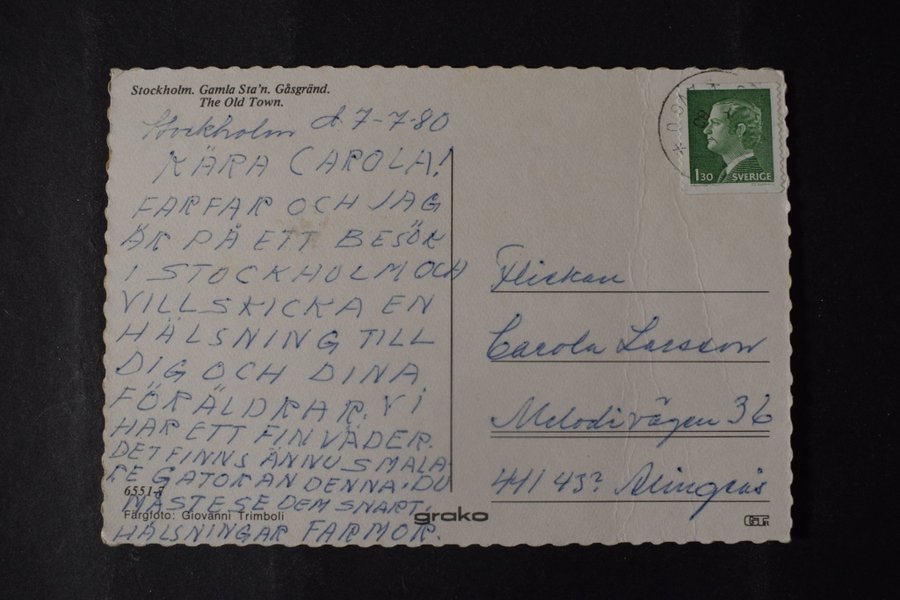 Stockholm. Gamla Sta'n. Gåsgränd.
The Old Town.
Stockholm d. 7-7-80
KÄRA CAROLA!
FARFAR OCH JAG
ÄR PÅ ETT BESÖK
I STOCKHOLM OCH
VILL SKICKA EN
HÄLSNING TILL
DIG OCH DINA
FÖRÄLDRAR. VI
HAR ETT FIN VÄDER.
DET FINNS ÄNNU SMALA-
RE GATOR ÄN DENNA. DU
MÅSTE SE DEM SNART.
HÄLSNINGAR FARMOR.
6551-7
Färgfoto: Giovanni Trimboli
groko
1.30 SVERIGE
Flickan
Carola Larsson
Melodivägen 36
441 43? Alingsås